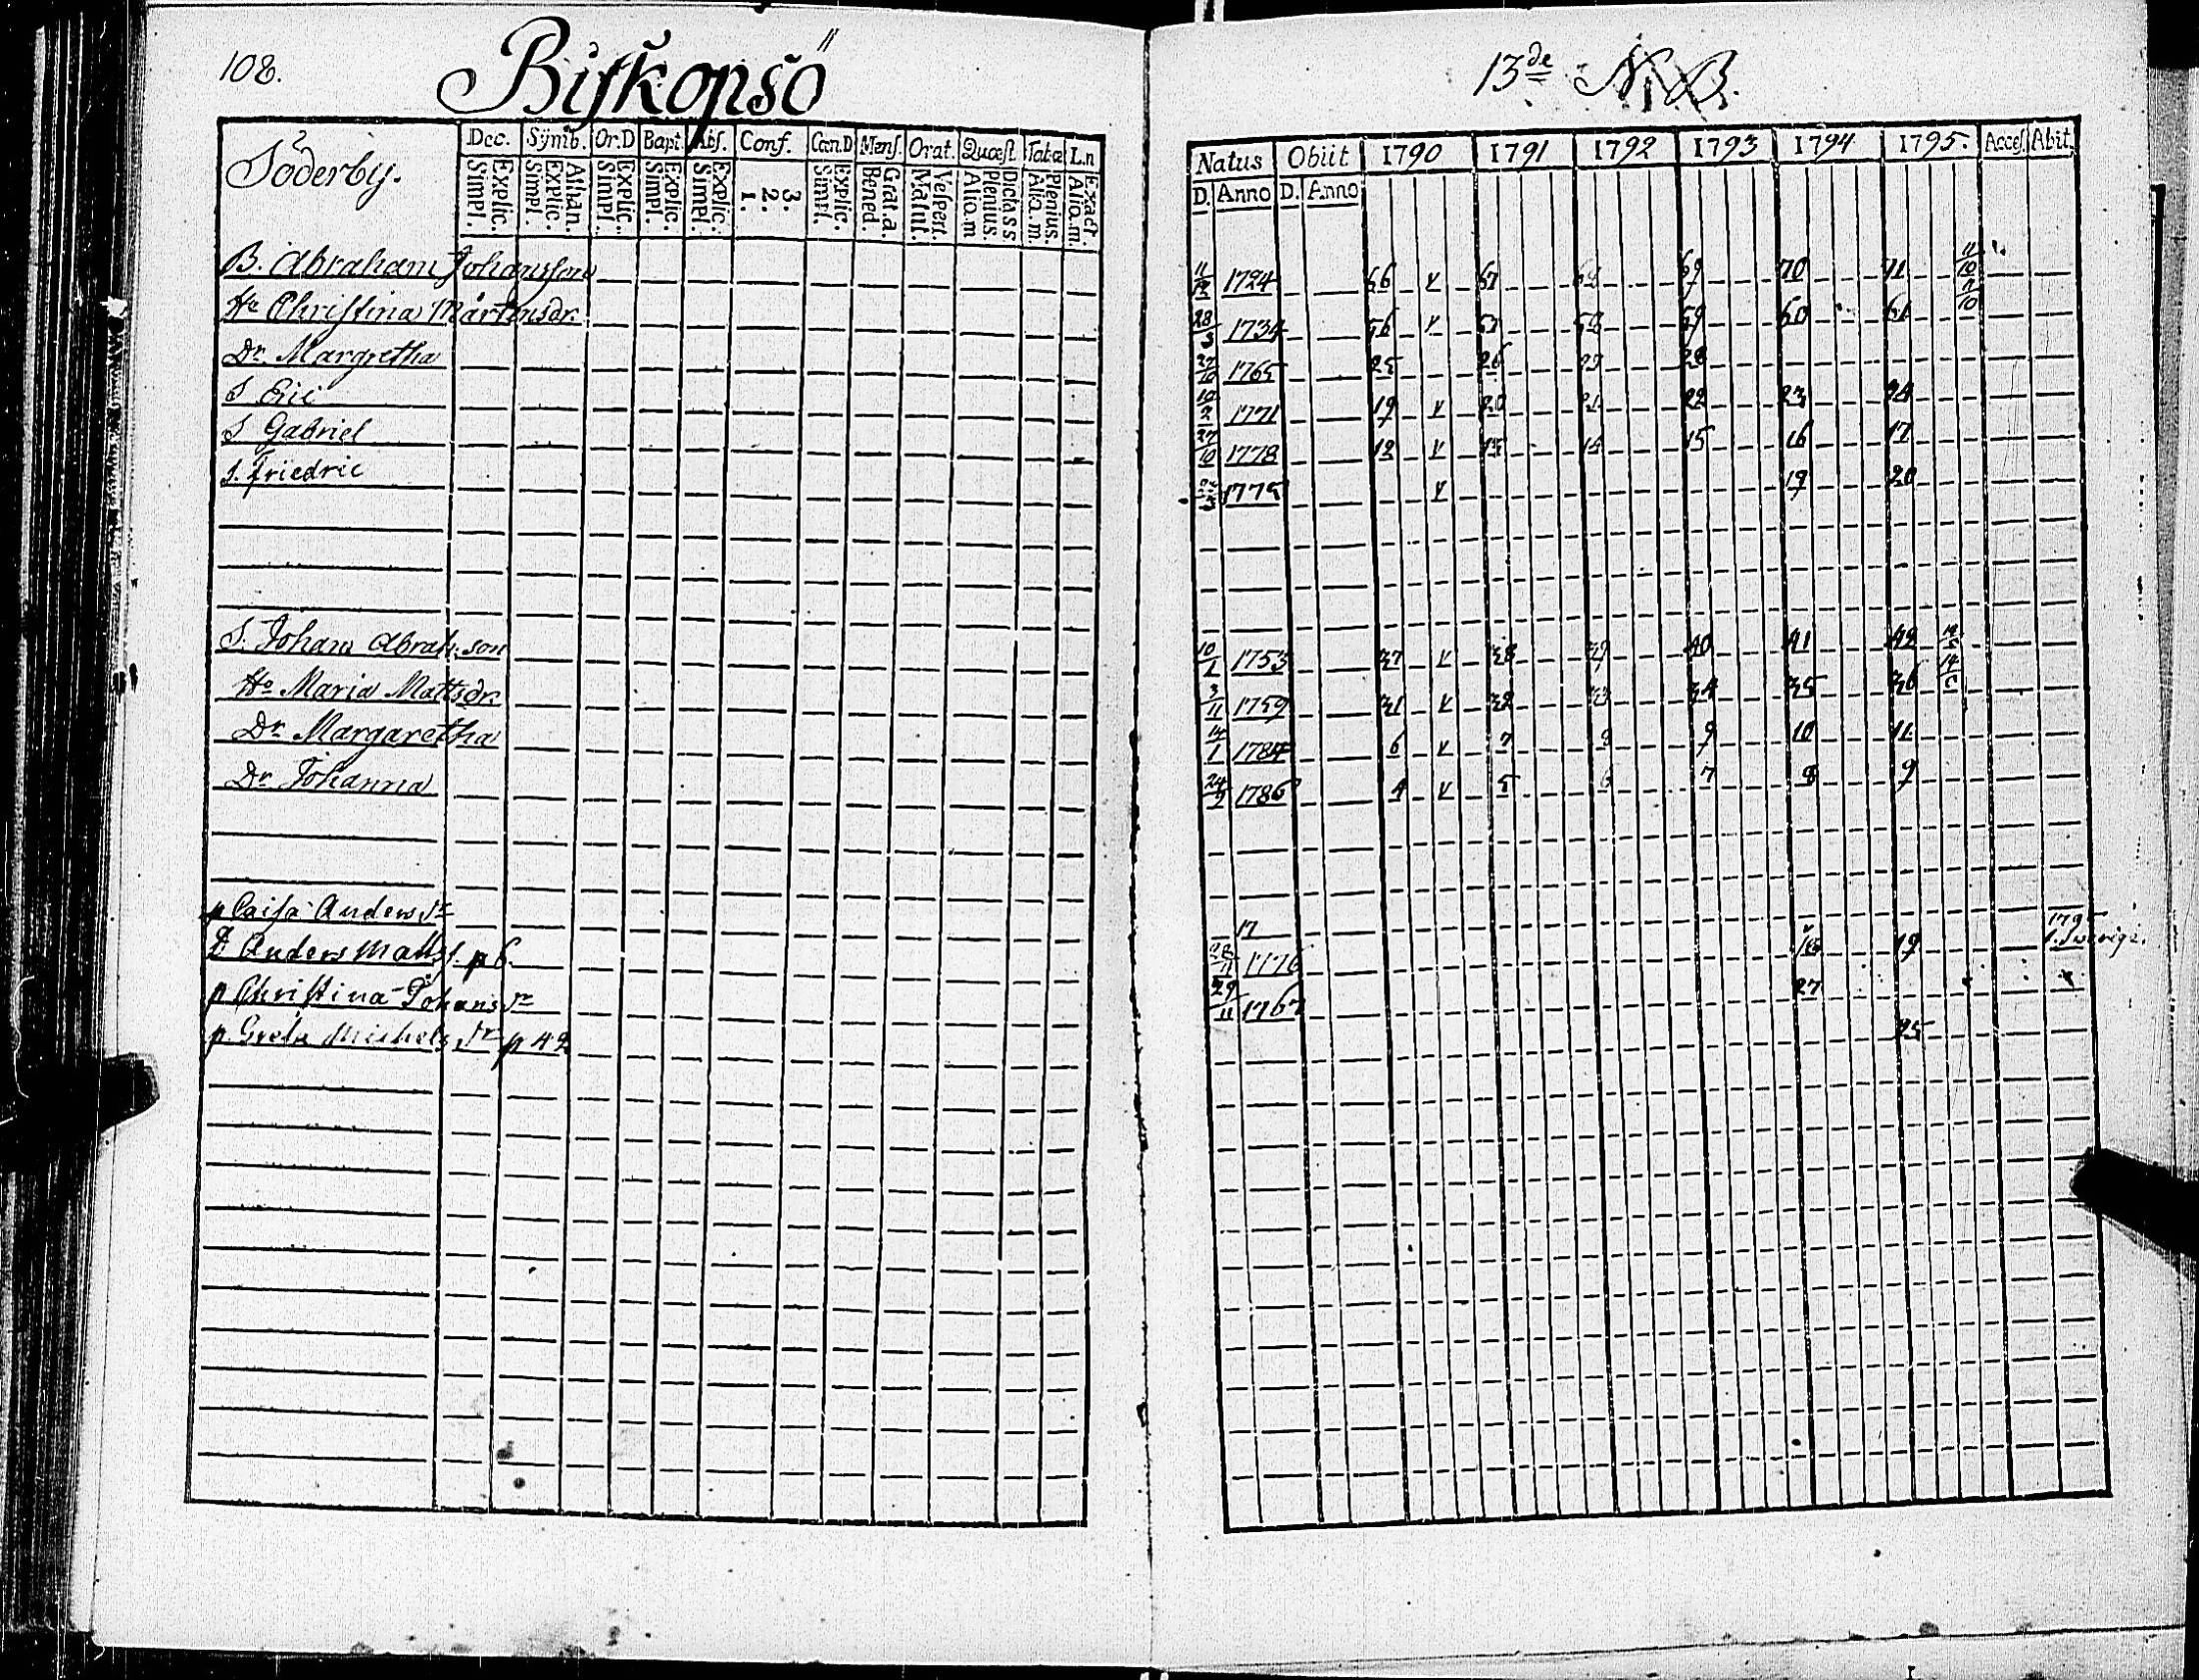 108. Biſkopsö
Söderby. Dec. Symb. Or.D Bapt. Abſ. Conf. Cœn.D Menſ. Orat. Quæſt. Tab.æ L.n
Simpl. Explic. Simpl. Explic. Athan. Simpl. Explic. Simpl. Explic. Simpl. Explic. 1. 2. 3. Simpl. Explic. Bened. Grat.a. Matut. Veſpert. Alio.m Plenius. Dicta s.s Alio.m. Plenius. Alio.m. Exact.
B. Abraham Johansſon
Ho Chriſtina Mårtensdr.
Dr. Margretha
S. Eric
S Gabriel
S. Friedric
S. Johan Abrah.son
Ho Maria Mattsdr.
Dr. Margaretha
Dr. Johanna
p Caiſa Anders dr
D Anders Matts ſ. p 6.
p Chriſtina Johans dr
p. Greta Michels dr p 42
13de N.B.
Natus Obiit 1790 1791 1792 1793 1794 1795. Acceſ. Abit.
D. Anno D. Anno
1724 66 v 67 68 69 70 71 11/10
28/3 1734 56 v 57 58 59 60 61 11/10
27/10 1765 25 26 27 28
1771 19 v 20 21 22 23 24
27/10 1778 12 v 13 14 15 16 17
1775 v 19 20
10/1 1753 37 v 38 39 40 41 42
3/11 1759 31 v 32 33 34 35 36
14/1 1784 6 v 7 8 9 10 11
24/9 1786 4 v 5 6 7 8 9
17
1776 18 19 1795
29/11 1767 27
25